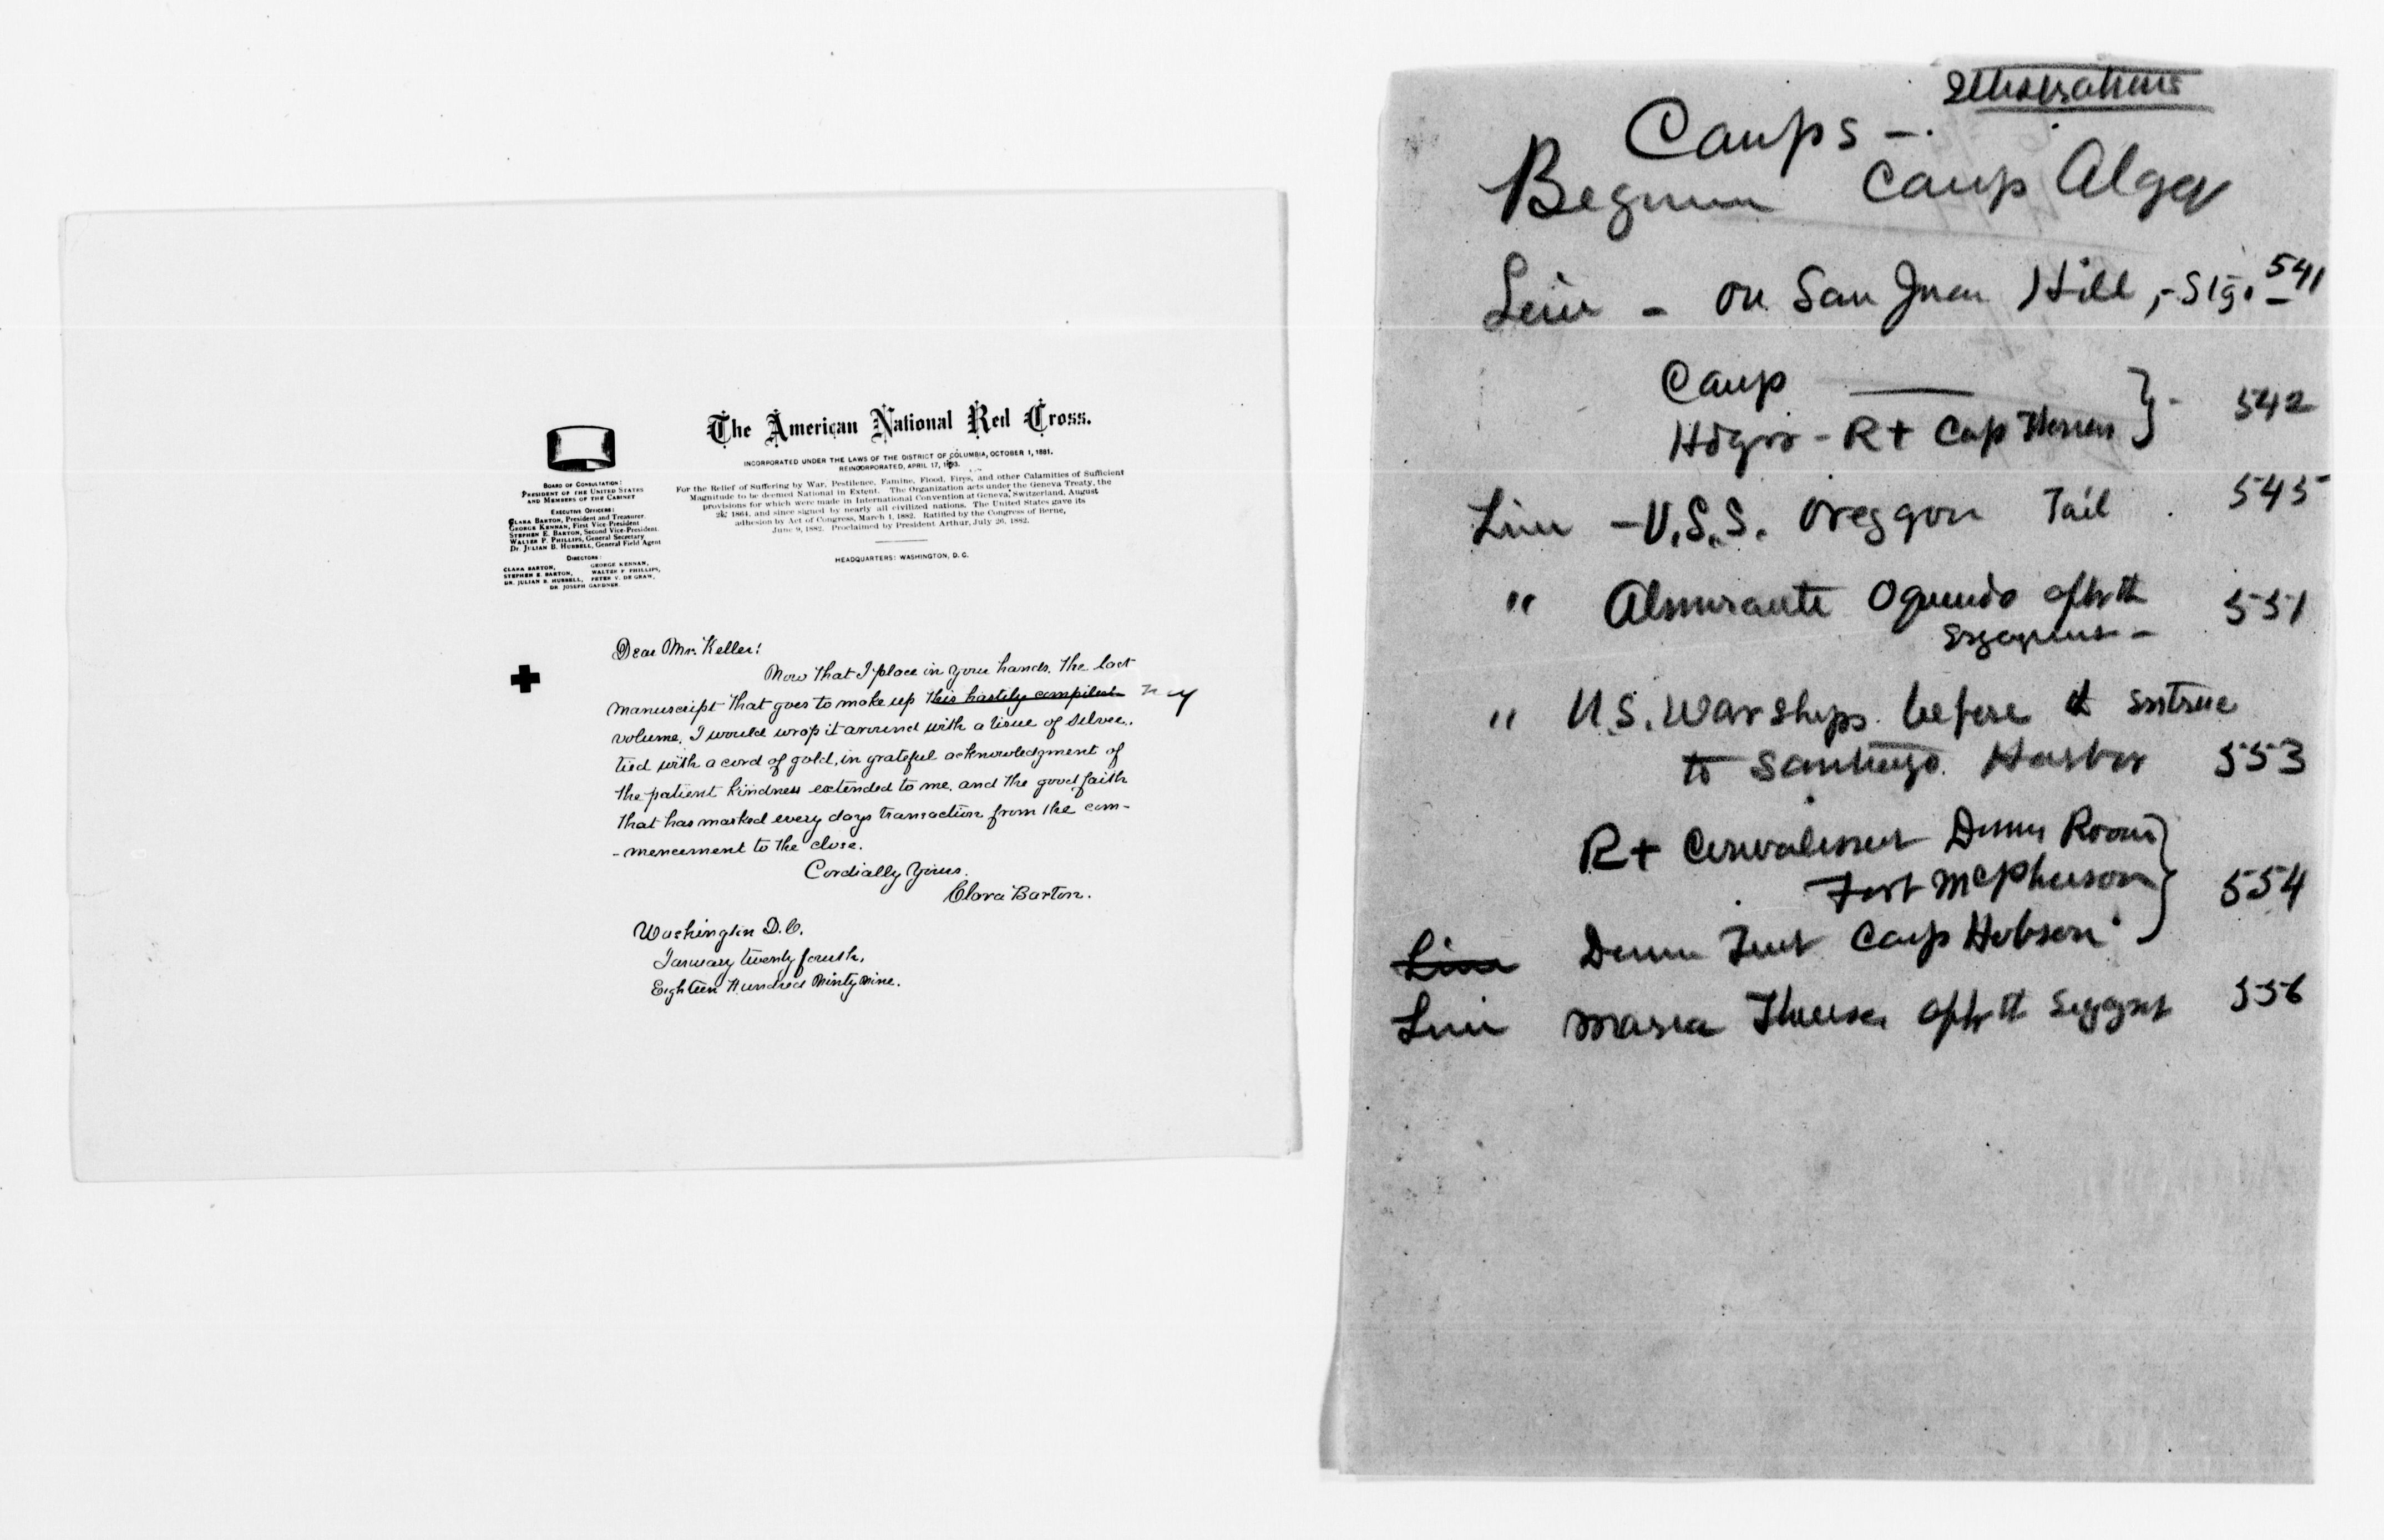 The American National Red Cross.
INCORPORATED UNDER THE LAWS OF THE DISTRICT OF COLUMBIA, OCTOBER 1, 1881.
REINCORPORATED, APRIL 17, 1893.
For the Relief of Suffering by War, Pestilence, Famine, Flood, Fires, and other Calamities of Sufficient
Magnitude to be deemed National in Extent. The Organization acts under the Geneva Treaty, the
provisions for which were made in International Convention at Geneva, Switzerland, August
22, 1864, and since signed by nearly all civilized nations. The United States gave its
adhesion by Act of Congress, March 1, 1882. Ratified by the Congress of Berne,
June 9, 1882. Proclaimed by President Arthur, July 26, 1882.
HEADQUARTERS: WASHINGTON, D. C.
BOARD OF CONSULTATION:
PRESIDENT OF THE UNITED STATES
AND MEMBERS OF THE CABINET
EXECUTIVE OFFICERS:
CLARA BARTON, President and Treasurer.
GEORGE KENNAN, First Vice-President
STEPHEN E. BARTON, Second Vice-President.
WALTER P. PHILLIPS, General Secretary
DR. JULIAN B. HUBBELL, General Field Agent
DIRECTORS:
CLARA BARTON, GEORGE KENNAN,
STEPHEN E. BARTON, WALTER P. PHILLIPS,
DR. JULIAN B. HUBBELL, PETER V. DE GRAW,
DR. JOSEPH GARDNER.
Dear Mr. Keller:
Now that I place in your hands, the last
manuscript that goes to make up this hastily compiled my
volume, I would wrap it around with a tissue of silver,
tied with a cord of gold, in grateful acknowledgment of
the patient kindness extended to me, and the good faith
that has marked every days transaction from the com-
-mencement to the close.
Cordially yours.
Clara Barton.
Washington D.C.
January twenty fourth,
Eighteen Hundred Ninty Nine.
Illustrations
Camps -
Camp Alger
Line - on San Juan Hill, - Sig. 541
Camp
Hdqrs - R + Camp 542
Line - U.S.S. Oreggon Tail 545
" Almirante Oquendo after th 551
" U.S. Warships before entrance
to Santiago Harbor 553
R + Convalescent Dinner Room
Fort McPherson 554
Line Dinner Tent Camp Hobson
Line Maria Theresa after th 556